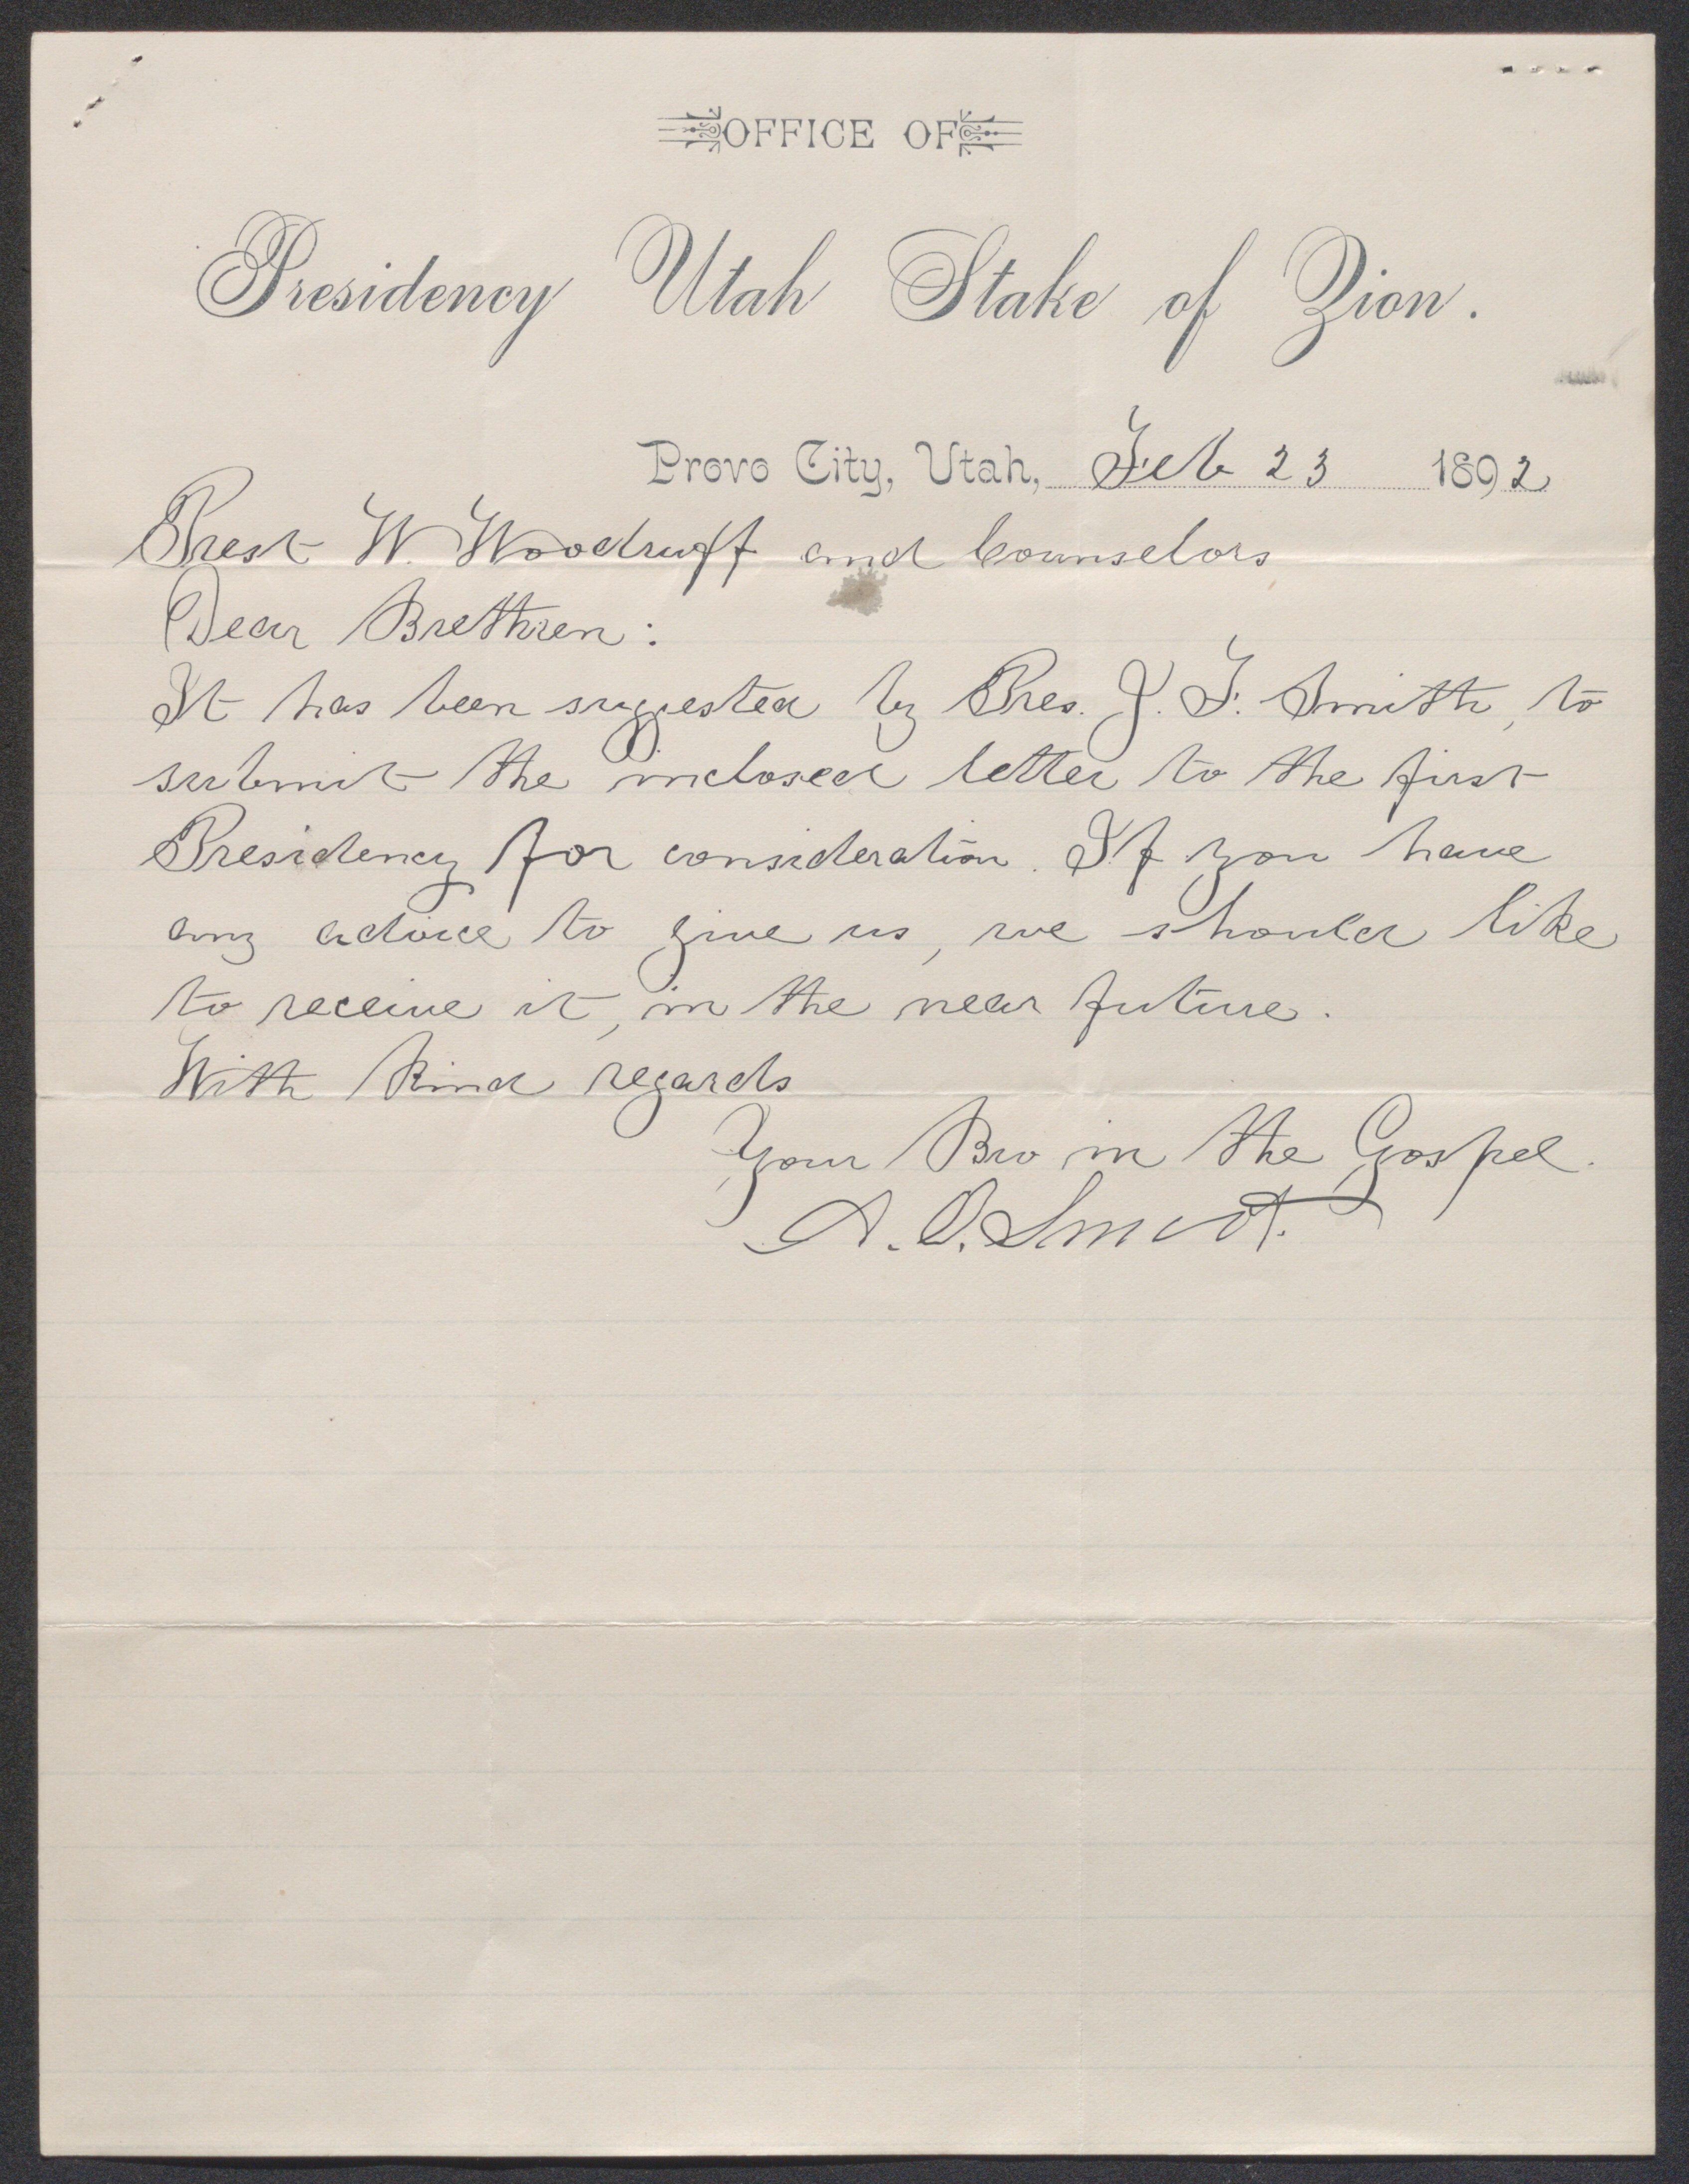 OFFICE OF
Presidency Utah Stake of Zion.
Provo City, Utah, Feb 23 1892
Prest W. Woodruff and Counselors
Dear Brethren:
It has been suggested by Pres. J. F. Smith, to
submit the inclosed letter to the first
Presidency for consideration. If you have
any advice to give us, we should like
to receive it, in the near future.
With kind regards
Your Bro in the Gospel.
A. O. Smoot.